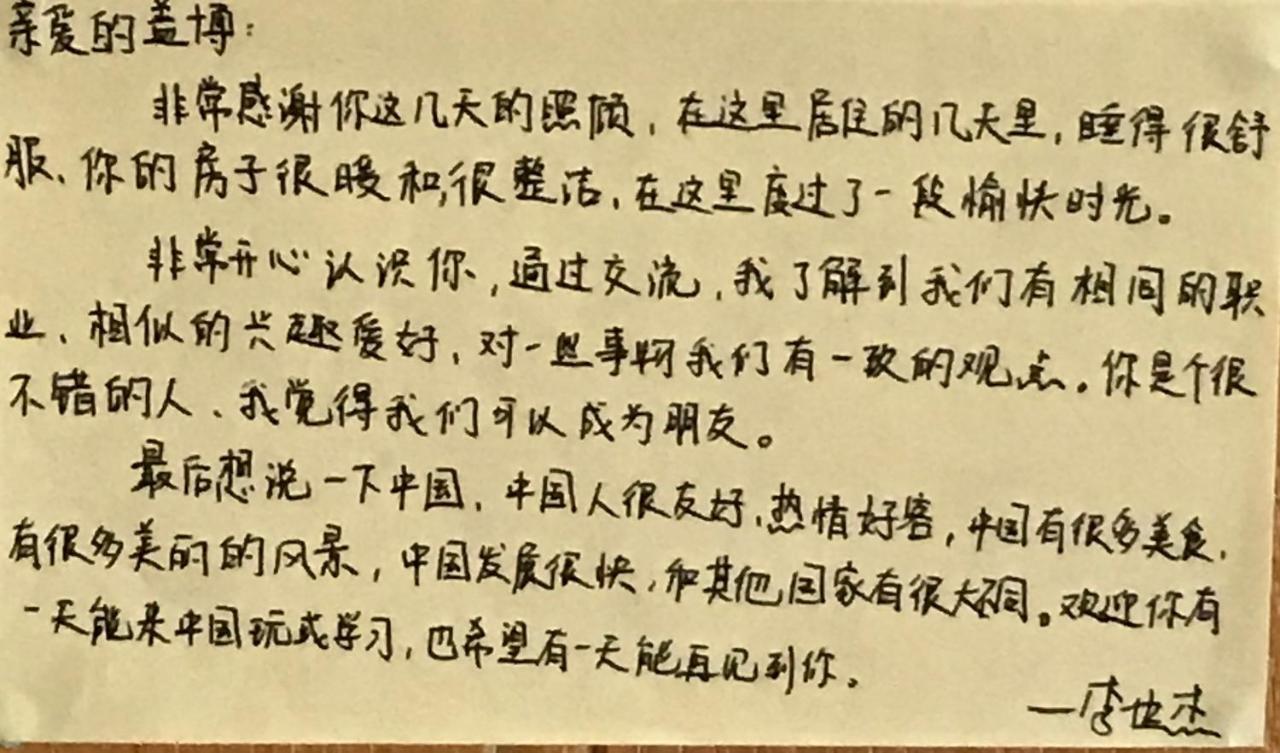 亲爱的盖博:
非常感谢你这几天的照顾,在这里居住的几天里,睡得很舒
服、你的房子很暖和,很整洁,在这里度过了一段愉快时光。
非常开心认识你,通过交流,我了解到我们有相同的职
业、相似的兴趣爱好,对一些事物我们有一致的观点。你是个很
不错的人、我觉得我们可以成为朋友。
最后想说一下中国,中国人很友好、热情好客,中国有很多美食,
有很多美丽的风景,中国发展很快,和其他国家有很大不同。欢迎你有
一天能来中国玩或学习,也希望有一天能再见到你。
—李世杰